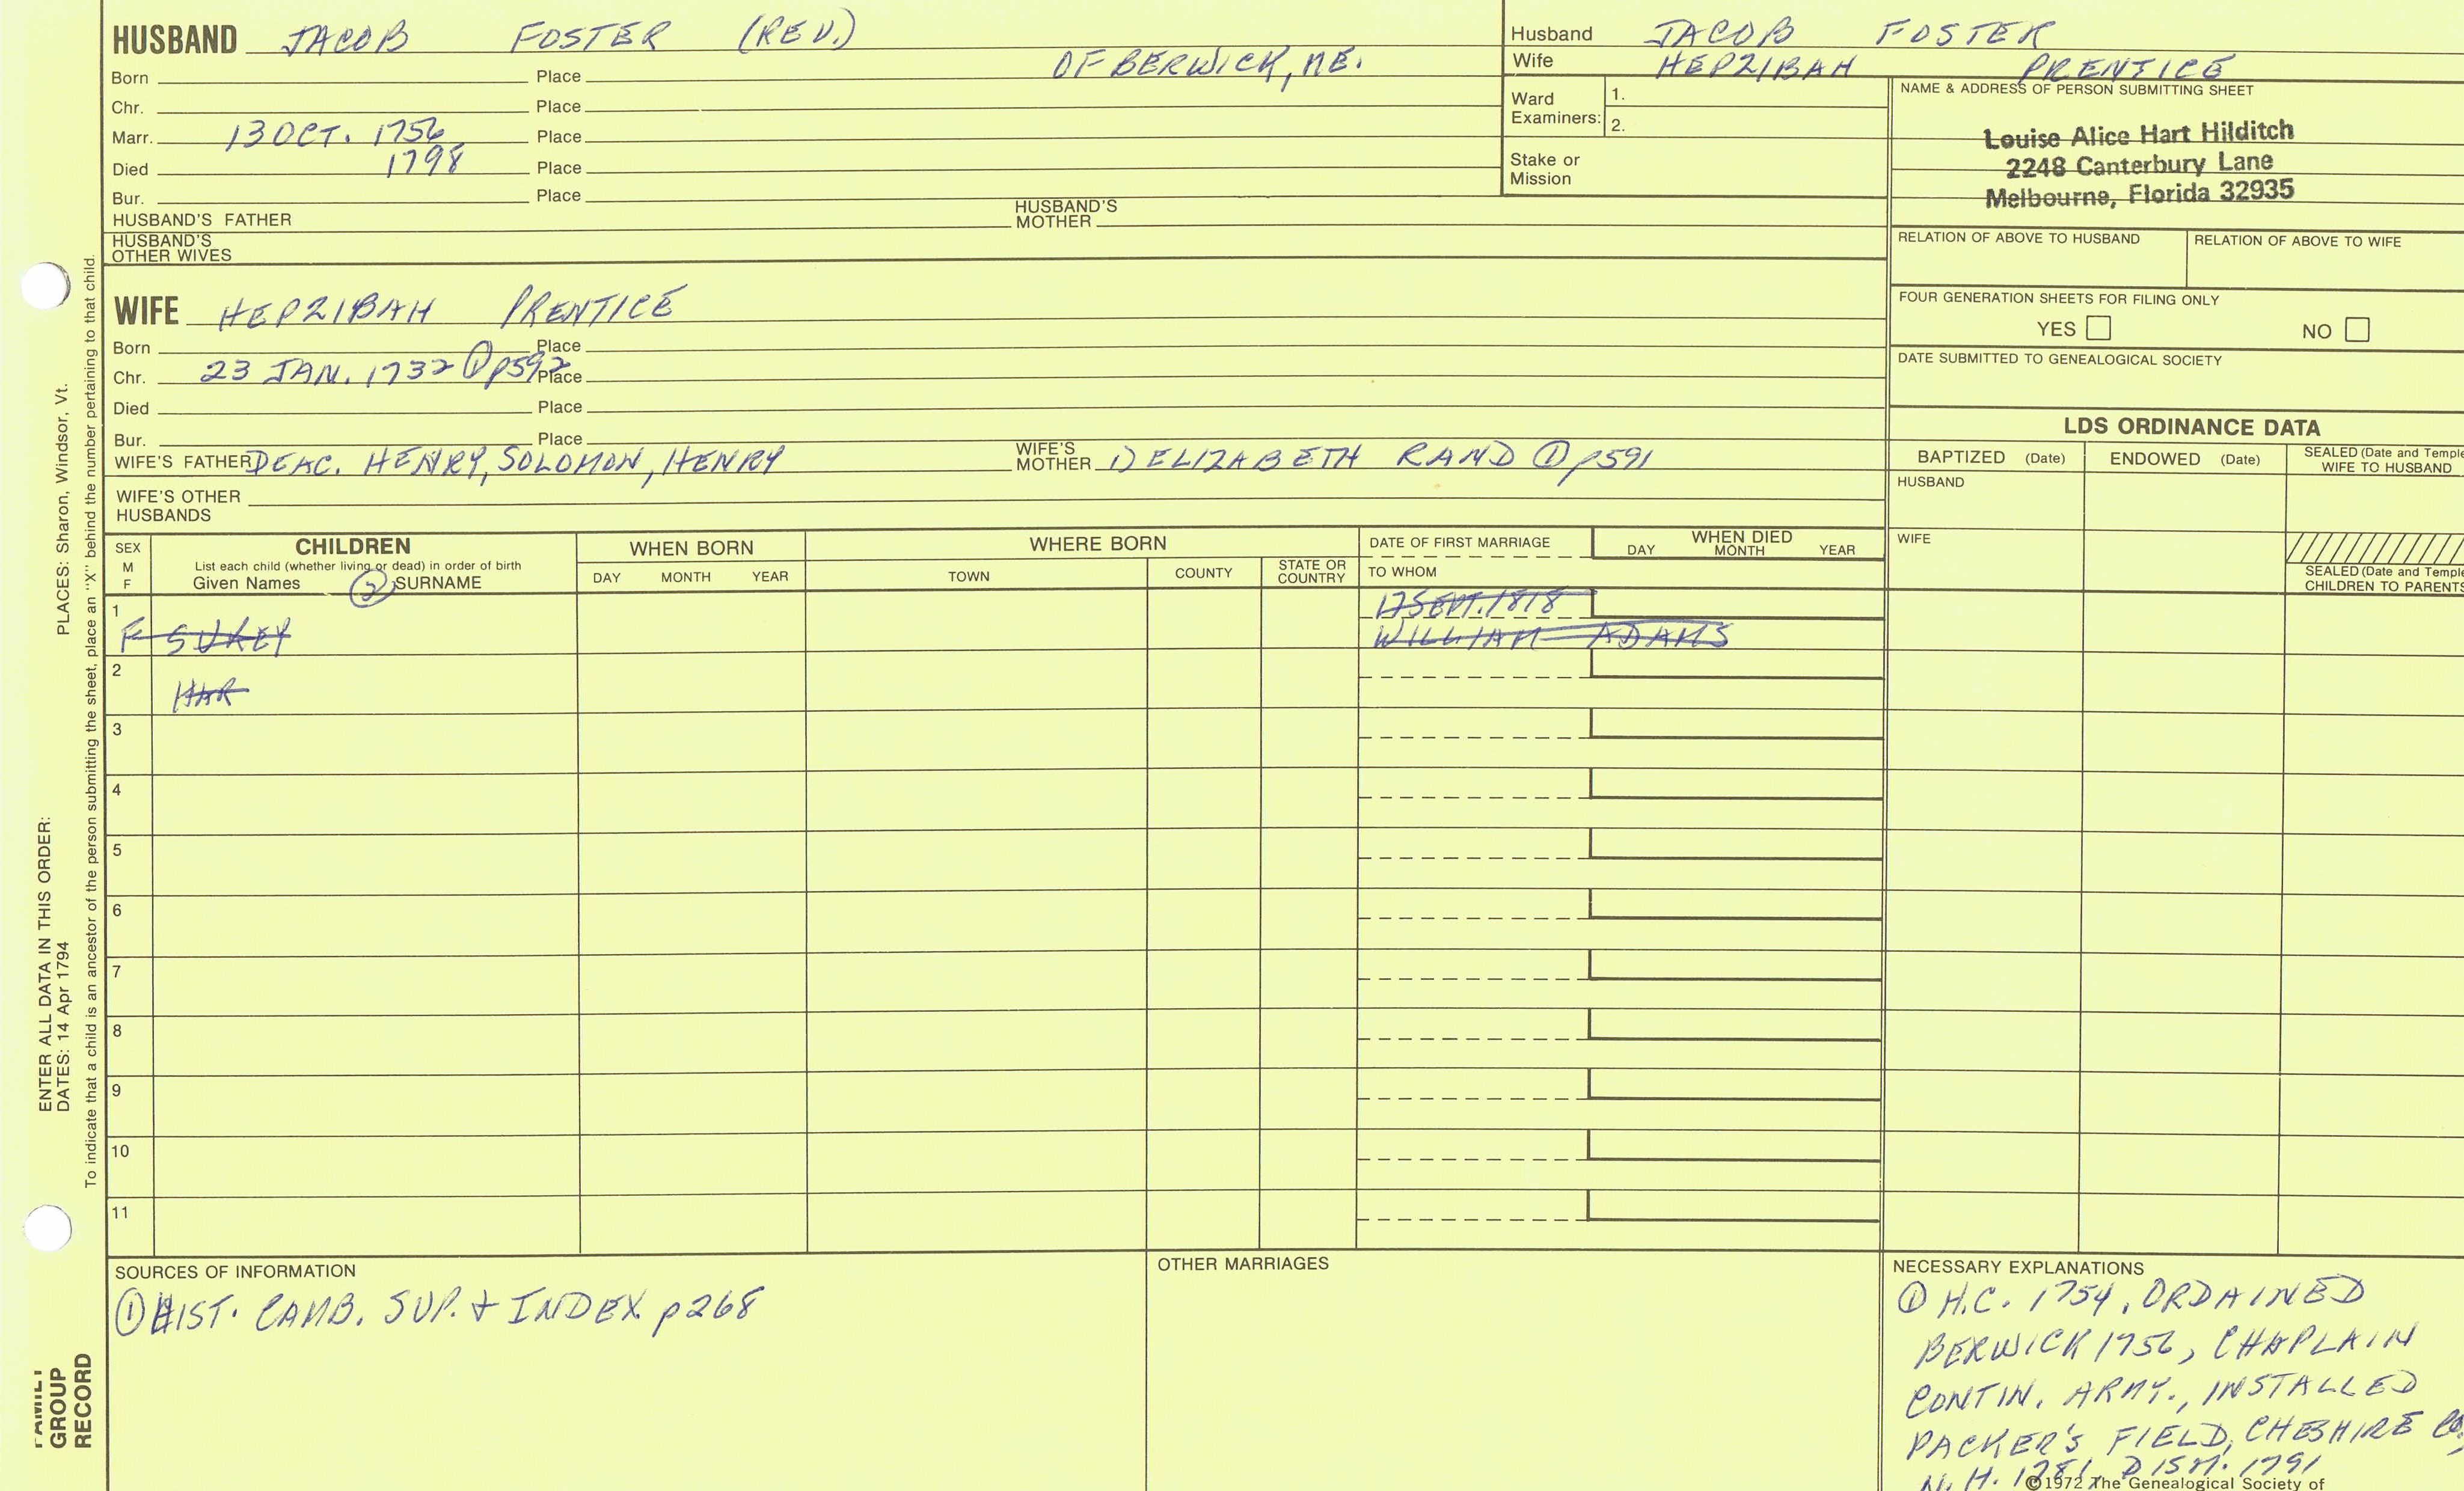 HUSBAND JACOB FOSTER (REV.)
OF BERWICK, ME.
Born Place
Chr. Place
Marr. 13 OCT. 1756 Place
Died 1798 Place
Bur. Place
HUSBAND'S FATHER HUSBAND'S MOTHER
HUSBAND'S OTHER WIVES
Husband JACOB FOSTER
Wife HEPZIBAH PRENTICE
Ward Examiners: 1.
2.
Stake or Mission
NAME & ADDRESS OF PERSON SUBMITTING SHEET
Louise Alice Hart Hilditch
2248 Canterbury Lane
Melbourne, Florida 32935
RELATION OF ABOVE TO HUSBAND RELATION OF ABOVE TO WIFE
FOUR GENERATION SHEETS FOR FILING ONLY
YES NO
DATE SUBMITTED TO GENEALOGICAL SOCIETY
WIFE HEPZIBAH PRENTICE
Born Place
Chr. 23 JAN. 1732 ① p592 Place
Died Place
Bur. Place
WIFE'S FATHER DEAC. HENRY, SOLOMON, HENRY WIFE'S MOTHER 1) ELIZABETH RAND ① p591
WIFE'S OTHER HUSBANDS
LDS ORDINANCE DATA
BAPTIZED (Date) ENDOWED (Date) SEALED (Date and Temple
WIFE TO HUSBAND
HUSBAND
WIFE
SEALED (Date and Temple
CHILDREN TO PARENTS
SEX M F
CHILDREN
List each child (whether living or dead) in order of birth
Given Names ② SURNAME
WHEN BORN
DAY MONTH YEAR
WHERE BORN
TOWN COUNTY STATE OR COUNTRY
DATE OF FIRST MARRIAGE
TO WHOM
WHEN DIED
DAY MONTH YEAR
1 17 SEPT. 1818
F SUKEY WILLIAM ADAMS
2
HAR
3
4
5
6
7
8
9
10
11
SOURCES OF INFORMATION
① HIST. CAMB. SUP. + INDEX p268
OTHER MARRIAGES
NECESSARY EXPLANATIONS
① H.C. 1754, ORDAINED
BERWICK 1756, CHAPLAIN
CONTIN. ARMY., INSTALLED
PACKER'S FIELD, CHESHIRE CO,
N.H. 1781, DISM. 1791
©1972 The Genealogical Society of
PLACES: Sharon, Windsor, Vt.
ENTER ALL DATA IN THIS ORDER:
DATES: 14 Apr 1794
To indicate that a child is an ancestor of the person submitting the sheet, place an "X" behind the number pertaining to that child.
FAMILY
GROUP
RECORD